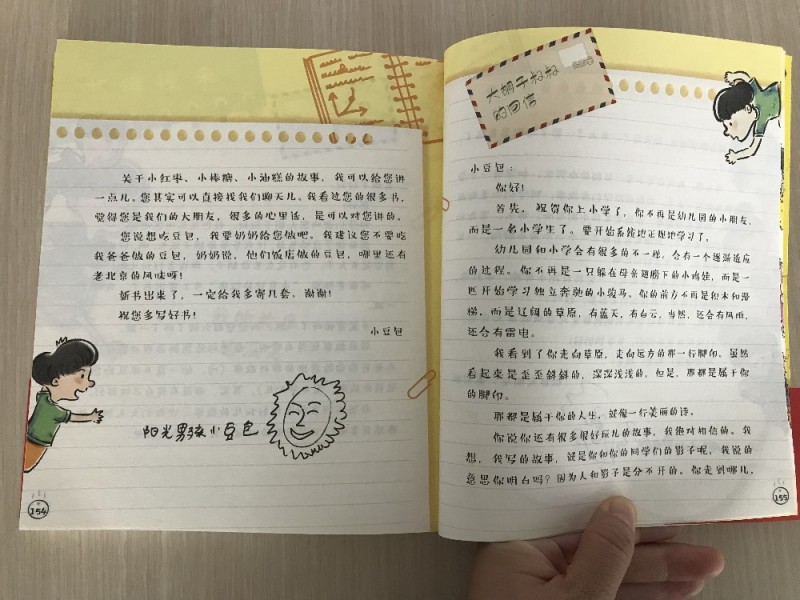 关于小红枣、小棒糖、小油糕的故事，我可以给您讲
一点儿。您其实可以直接找我们聊天儿。我看过您的很多书，
觉得您是我们的大朋友，很多的心里话，是可以对您讲的。
您说想吃豆包，我要奶奶给您做吧。我建议您不要吃
我爸爸做的豆包，奶奶说，他们饭店做的豆包，哪里还有
老北京的风味呀！
新书出来了，一定给我多寄几套。谢谢！
祝您多写好书！
小豆包
阳光男孩小豆包
154
大胡子叔叔
的回信
小豆包：
你好！
首先，祝贺你上小学了，你不再是幼儿园的小朋友，
而是一名小学生了。要开始系统地正规地学习了。
幼儿园和小学会有很多的不一样，会有一个逐渐适应
的过程。你不再是一只躲在母亲翅膀下的小鸡娃，而是一
匹开始学习独立奔驰的小骏马。你的前方不再是积木和滑
梯，而是辽阔的草原，有蓝天，有白云，当然，还会有风雨，
还会有雷电。
我看到了你走向草原，走向远方的那一行脚印。虽然
看起来是歪歪斜斜的，深深浅浅的，但是，那都是属于你
的脚印。
那都是属于你的人生，就像一行美丽的诗。
你说你还有很多很好玩儿的故事，我绝对相信的。我
想，我写的故事，就是你和你的同学们的影子呢，我说的
意思你明白吗？因为人和影子是分不开的。你走到哪儿，
155